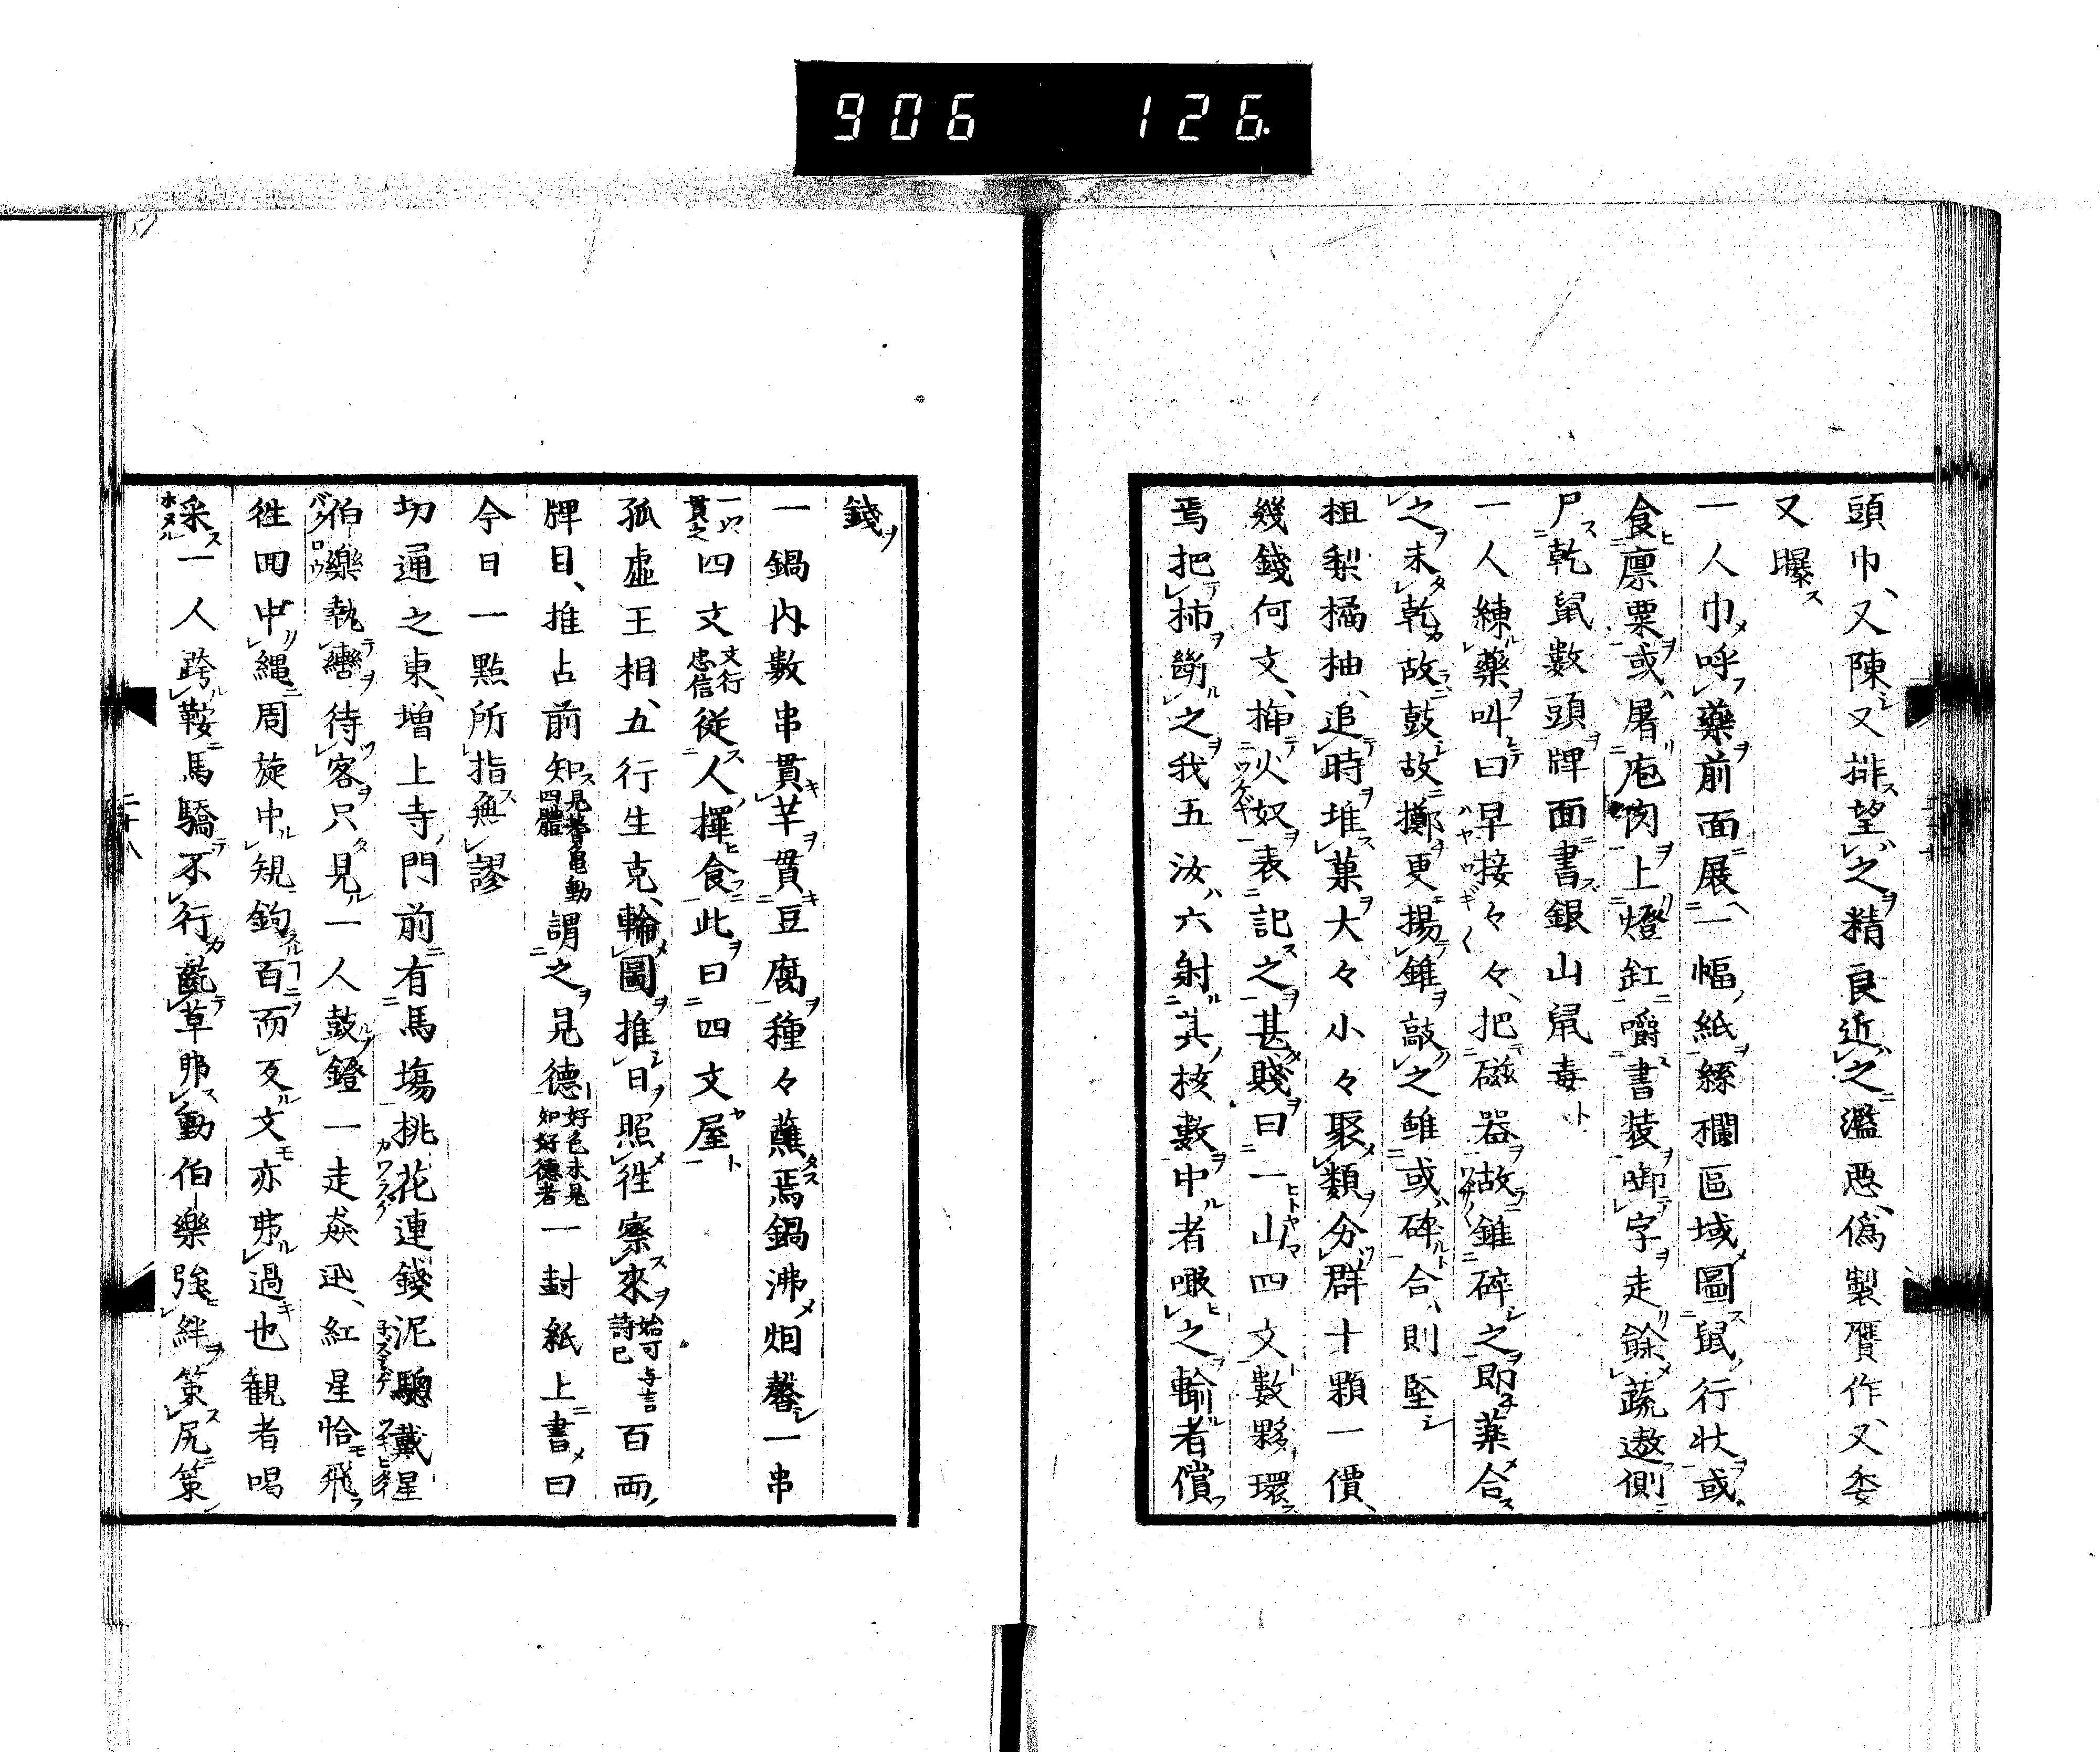 906 126
頭巾、又陳又排望之精良近之濫悪、偽製贋作、又委
又曝
一人巾呼藥前面展一幅紙絲欄區域圖鼠行状或
食廪粟或屠庖肉上燈缸嚼書装啣字走餘蔬遨側
尸乾鼠數頭牌面書銀山鼠毒
一人練藥叫曰早接々々、把磁器故錐碎之即薬合
之未乾故鼓故擲更揚錐敲之雖或碎合、則堅
柤梨橘柚、追時堆菓大々小々聚類分群十顆一價、
幾錢何文、挿火奴表記之甚賤曰一山四文數夥環
焉把柿斷之我五汝六射其核數中者噉之輸者償
錢
一鍋内數串貫芋貫豆腐種々蘸焉鍋沸烟馨一串
一以貫之四文文行忠信従人擇食此曰四文屋
孤虚王相、五行生克、輪圖推日照徃察來始可与言詩已百両
牌目、推占前知見蓍亀動四體謂之見德好色未見知好德者一封紙上書曰
今日一點所指無謬
切通之東、増上寺門前有馬塲挑花連錢泥驄戴星
伯樂執轡待客只見一人鼓鐙一走猋迅、紅星恰飛
徃回中縄周旋中規鉤百而反文亦弗過也観者喝
采一人跨鞍馬驕不行齕草弗動伯樂強絆策尻策
二十八